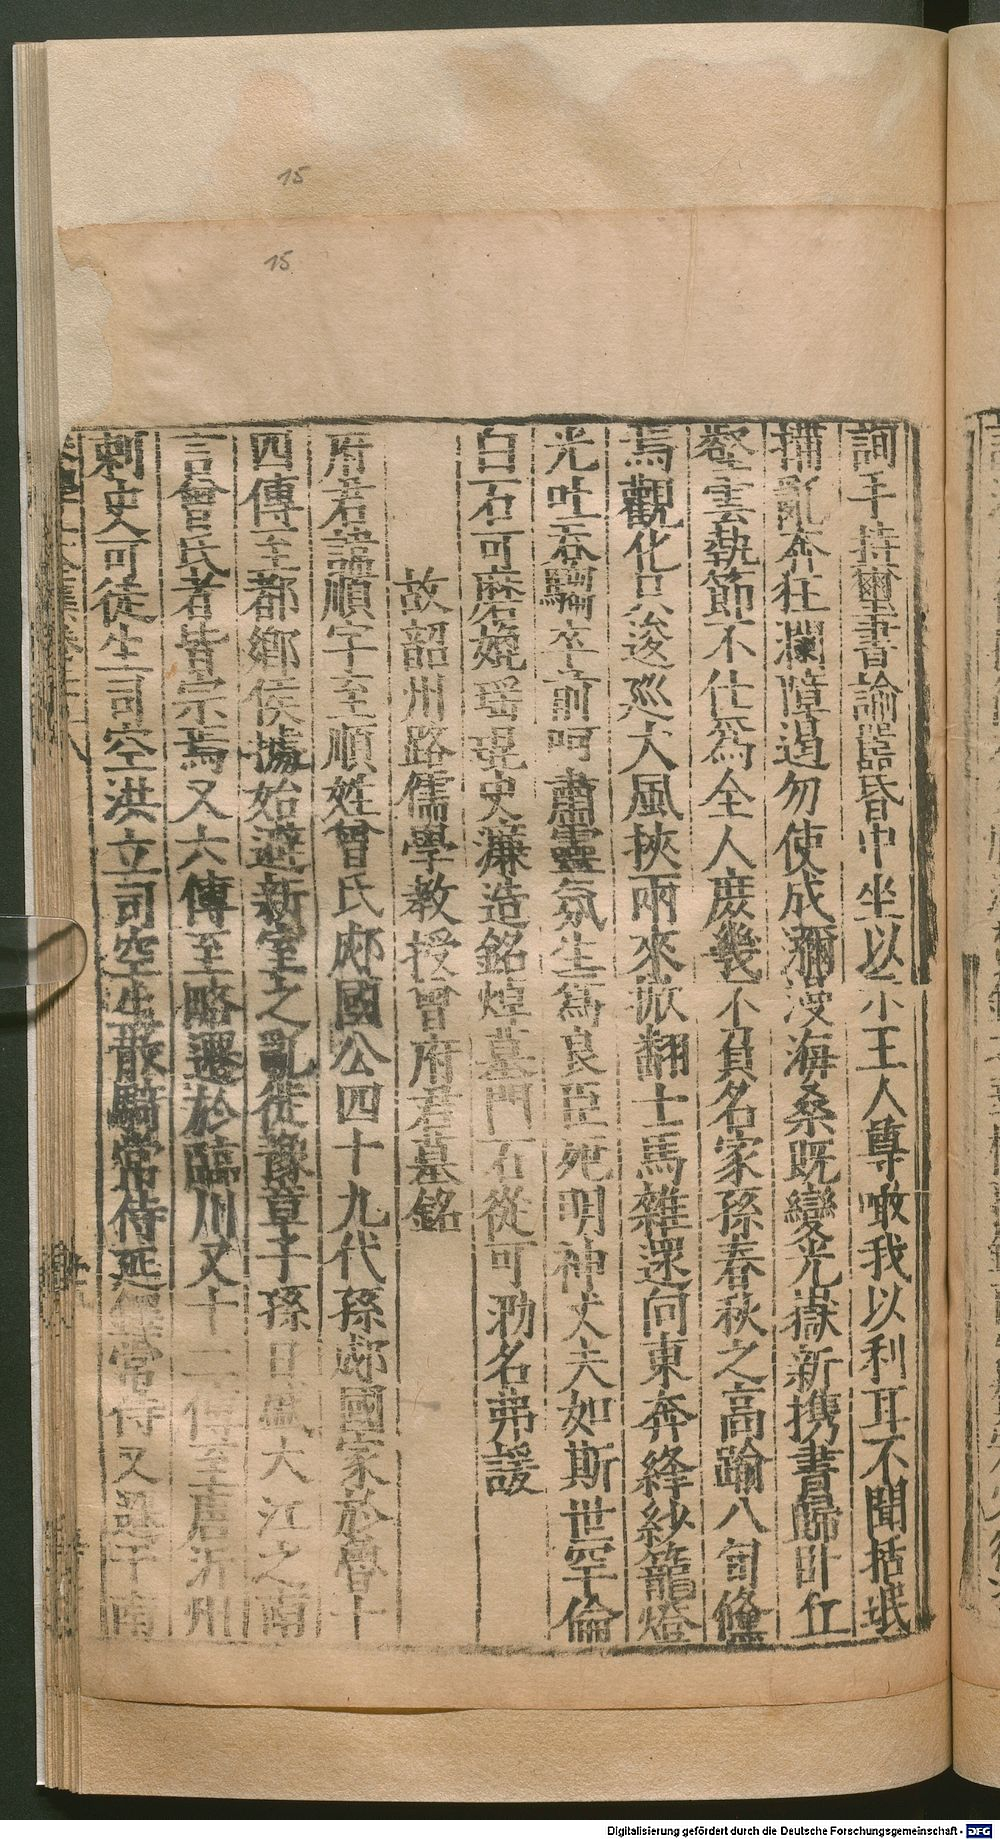 15
15
詞手持璽書諭嚚昏中坐以示王人尊啖我以利耳不聞括垊
捕亂奔狂瀾障遏勿使成瀰漫海桑既變光嶽新携書歸卧丘
壑雲執節不仕為全人庶幾不負名家孫春秋之高踰八旬翛
焉觀化只逡巡大風挾雨來掀翻士馬雜遝向東奔絳紗籠燈
光吐吞騶卒前呵肅靈氛生為良臣死明神丈夫如斯世罕倫
白石可磨婉瑶琨史濂造銘煌墓門石從可泐名弗諼
故韶州路儒學教授曾府君墓銘
府君諱順字至順姓曾氏郕國公四十九代孫郕國家於魯十
四傳至都鄉侯據始避新室之亂徙豫章子孫日盛大江之南
言曾氏者皆宗焉又六傳至略遷於臨川又十二傳至唐沂州
刺史可徒生司空洪立司空生散騎常侍延 常侍又遷于南
Digitalisierung gefördert durch die Deutsche Forschungsgemeinschaft - DFG